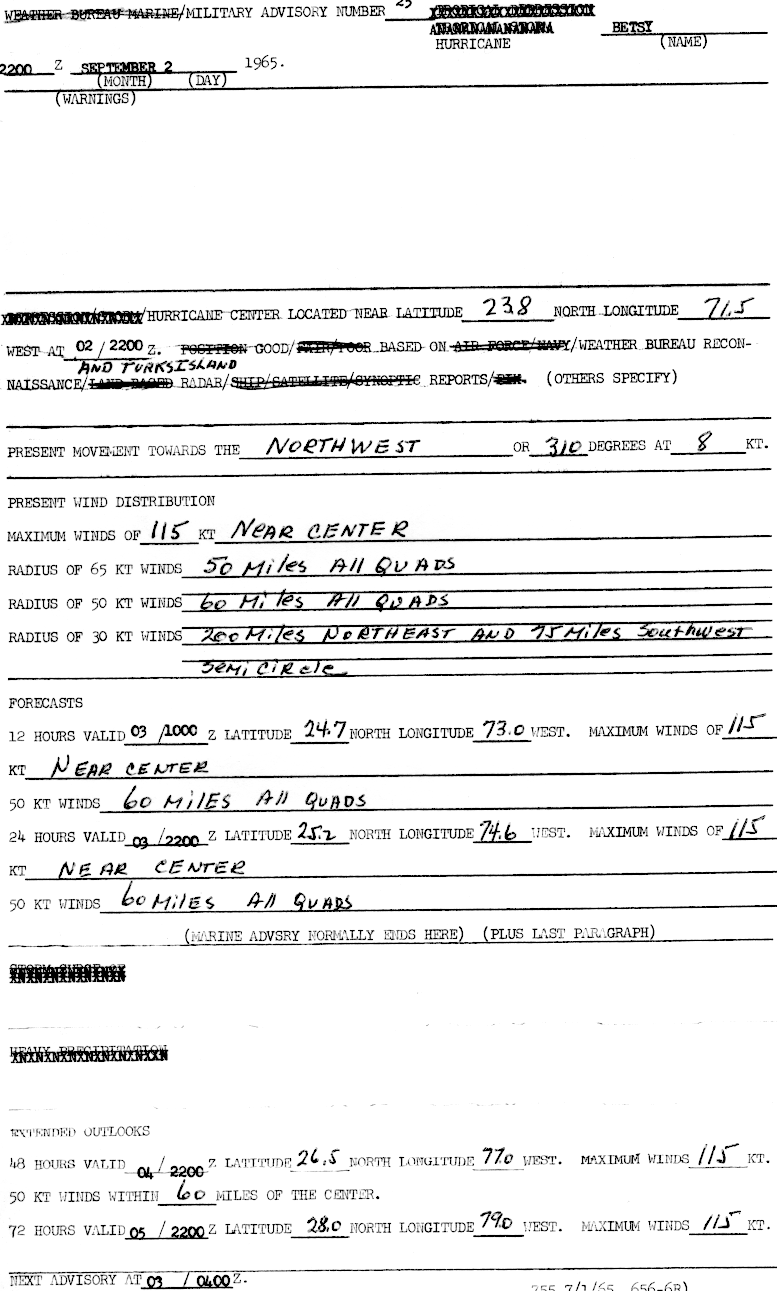 WEATHER BUREAU MARINE/MILITARY ADVISORY NUMBER 25 TROPICAL DEPRESSION
HURRICANE BETSY
(NAME)
2200 Z SEPTEMBER 2 1965.
(MONTH) (DAY)
(WARNINGS)
/HURRICANE CENTER LOCATED NEAR LATITUDE 23.8 NORTH LONGITUDE 71.5
WEST AT 02 / 2200 Z. POSITION GOOD/FAIR/POOR BASED ON AIR FORCE/NAVY/WEATHER BUREAU RECON-
AND TURKS ISLAND
NAISSANCE/LAND BASED RADAR/SHIP/SATELLITE/SYNOPTIC REPORTS/ (OTHERS SPECIFY)
PRESENT MOVEMENT TOWARDS THE NORTHWEST OR 310 DEGREES AT 8 KT.
PRESENT WIND DISTRIBUTION
MAXIMUM WINDS OF 115 KT NEAR CENTER
RADIUS OF 65 KT WINDS 50 Miles All QUADS
RADIUS OF 50 KT WINDS 60 Miles All QUADS
RADIUS OF 30 KT WINDS 200 Miles NORTHEAST AND 75 Miles Southwest
Semi Circle
FORECASTS
12 HOURS VALID 03 /1000 Z LATITUDE 24.7 NORTH LONGITUDE 73.0 WEST. MAXIMUM WINDS OF 115
KT NEAR CENTER
50 KT WINDS 60 MILES All QUADS
24 HOURS VALID 03 /2200 Z LATITUDE 25.2 NORTH LONGITUDE 74.6 WEST. MAXIMUM WINDS OF 115
KT NEAR CENTER
50 KT WINDS 60 MILES All QUADS
(MARINE ADVSRY NORMALLY ENDS HERE) (PLUS LAST PARAGRAPH)
STORM SURGE OF
HEAVY PRECIPITATION
EXTENDED OUTLOOKS
48 HOURS VALID 04 / 2200 Z LATITUDE 26.5 NORTH LONGITUDE 77.0 WEST. MAXIMUM WINDS 115 KT.
50 KT WINDS WITHIN 60 MILES OF THE CENTER.
72 HOURS VALID 05 / 2200 Z LATITUDE 28.0 NORTH LONGITUDE 79.0 WEST. MAXIMUM WINDS 115 KT.
NEXT ADVISORY AT 03 / 0400 Z.
7/1/65 656-6R)